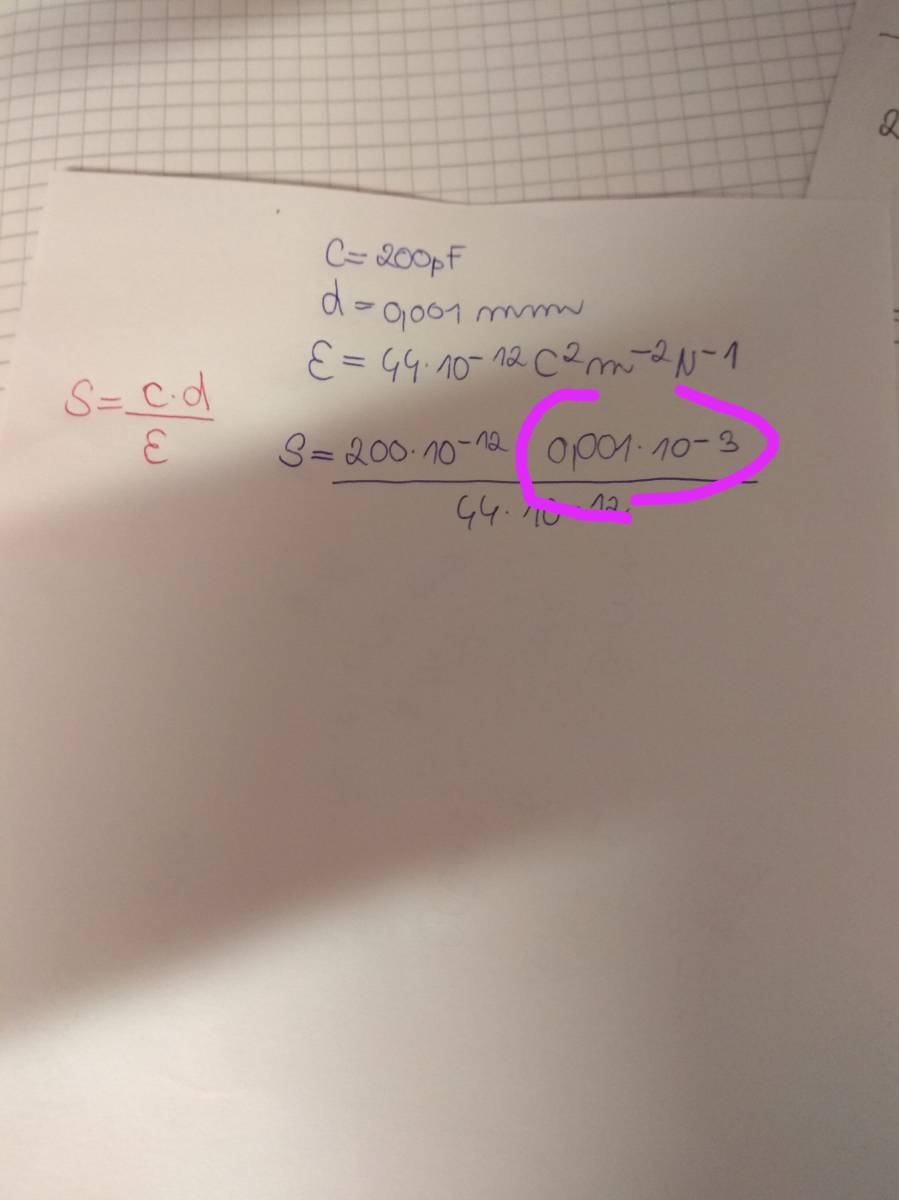 2
C=200pF
d=0,001 mm
ε=44·10⁻¹²C²m⁻²N⁻¹
S=C·d
ε
S=200·10⁻¹² 0,001·10⁻³
44·10⁻¹²